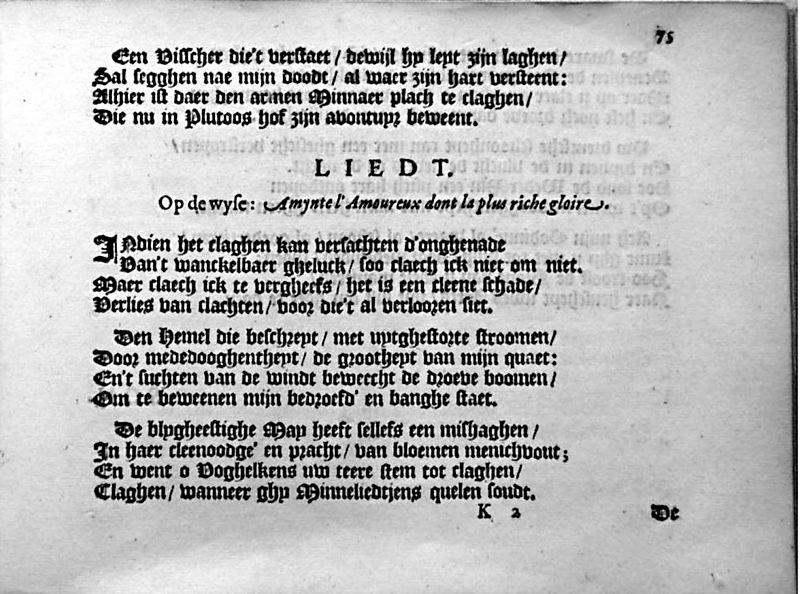 75
Een Visscher die't verstaet / dewijl hy leyt zijn laghen /
Sal segghen nae mijn doodt / al waer zijn hart versteent:
Alhier ist daer den armen Minnaer plach te claghen /
Die nu in Plutoos hof zijn avontuyr beweent.
LIEDT.
Op de wyse: Amynte l'Amoureux dont la plus riche gloire.
INdien het claghen kan versachten d'onghenade
Van't wanckelbaer gheluck / soo claech ick niet om niet.
Maer claech ick te vergheefs / het is een cleene schade /
Verlies van clachten / voor die't al verlooren siet.
Den Hemel die beschreyt / met uytghestorte stroomen /
Door mededooghentheyt / de grootheyt van mijn quaet:
En't suchten van de windt beweecht de droeve boomen /
Om te beweenen mijn bedroefd' en banghe staet.
De blygheestighe May heeft sellefs een mishaghen /
In haer cleenoodge' en pracht / van bloemen menichvout;
En went o Voghelkens uw teere stem tot claghen /
Claghen / wanneer ghy Minneliedtjens quelen soudt.
K 2 De